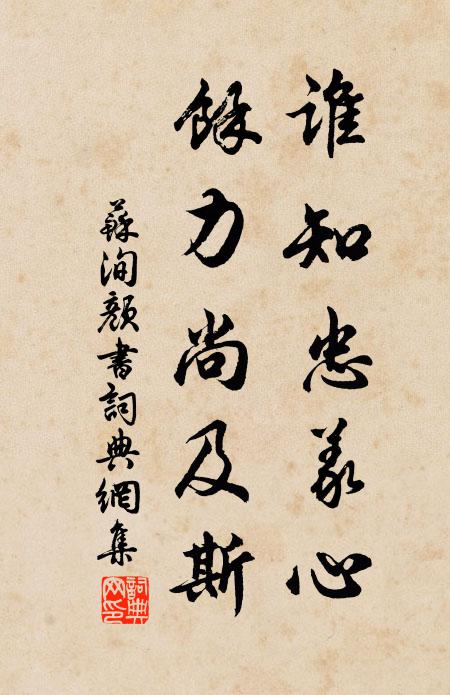 誰知忠義心
餘力尚及斯
蘇洵顏書詞典網集